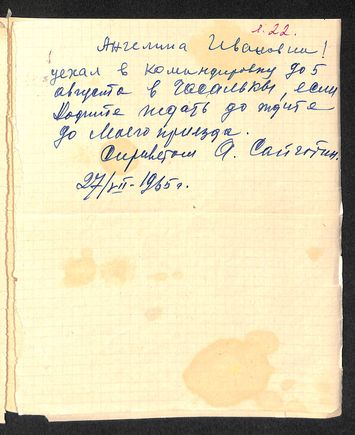 л. 22.
Ангелина Ивановна!
уехал в командировку до 5
августа в, если
ждать до ждите
до моего приезда.
Сприветом А.
27/VII-1965 г.